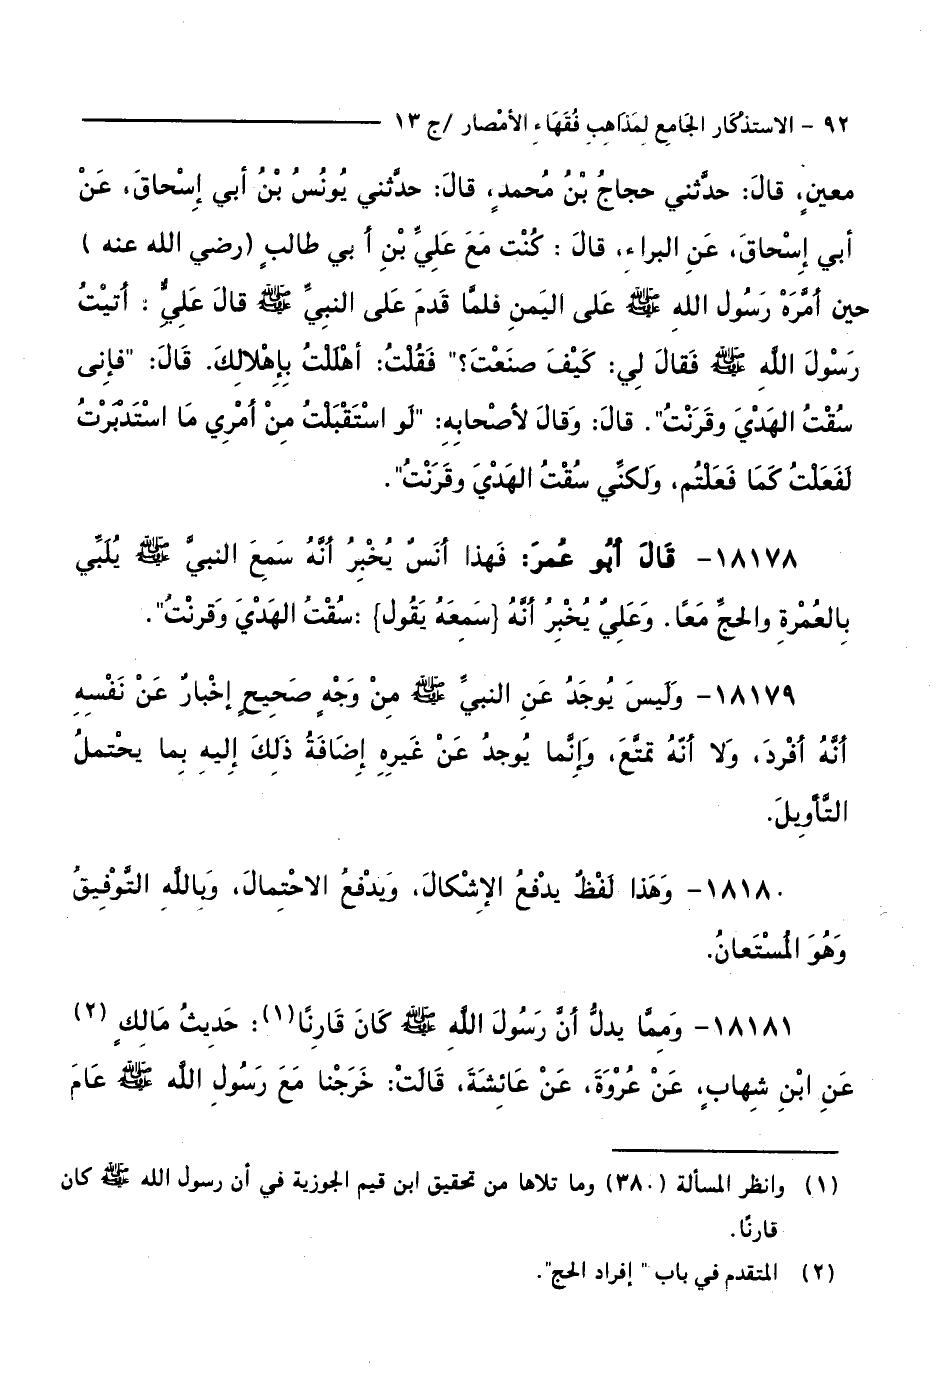 ٩٢ - الاستذْكَار الجَامِع لمَذاهِبِ فُقَهَاءِ الأمْصار /ج ١٣
معينٍ، قالَ: حدَّثني حجاجُ بْنُ مُحمدٍ، قالَ: حدَّثني يُونُسُ بْنُ أبي إسْحاقَ، عَنْ
أبي إسْحاقَ، عَنِ البراءِ، قالَ : كُنْت مَعَ عَلِيِّ بْنِ أَ بي طالبٍ (رضي الله عنه )
حين أمَّرَهْ رَسُول الله ﷺ عَلى اليَمنِ فلمَّا قَدمَ عَلى النبيِّ ﷺ قالَ عَلِيٌّ : أتيْتُ
رَسْولَ اللَّهِ ﷺ فَقالَ لي: كَيْفَ صنَعْتَ؟" فَقُلْتُ: أهْلَلْتُ بِإهْلالِكَ. قَالَ: "فإنى
سُقْتُ الهَدْيَ وقَرَنْتُ". قالَ: وَقالَ لأصْحابِهِ: "لَو اسْتَقْبَلْتُ مِنْ أمْرِي مَا اسْتَدْبَرْتُ
لَفَعَلْتُ كَمَا فَعَلْتُم، ولَكنِّي سُقْتُ الهَدْيَ وقَرَنْتُ".
١٨١٧٨- قَالَ أبُو عُمرَ: فَهذا أنَسٌ يُخْبِرُ أنَّهُ سَمِعَ النبيَّ ﷺ يُلَبِّي
بِالعُمْرةِ والحجِّ مَعًا. وَعَلِيٌّ يُخْبِرُ أنَّهُ {سَمِعَهُ يَقُول} :سُقْتُ الهَدْيَ وَقرنْتُ".
١٨١٧٩- وَلَيسَ يُوجَدُ عَنِ النبيِّ ﷺ مِنْ وَجْهٍ صَحيحٍ إخْبارٌ عَنْ نَفْسِهِ
أنَّهُ أفْردَ، وَلا أنّهُ تمتَّعَ، وَإنَّما يُوجدُ عَنْ غَيرِهِ إضَافَةُ ذَلِكَ إليهِ بِما يحْتملُ
التَّأوِيلَ.
١٨١٨٠- وَهَذا لَفْظٌ يدْفعُ الإشْكالَ، ويَدْفعُ الاحْتِمالَ، وَبِاللَّهِ التَّوْفِيقُ
وَهُوَ المُسْتَعانُ.
١٨١٨١- وَمِمَّا يدلُّ أنَّ رَسُولَ اللَّهِ ﷺ كَانَ قَارِنًا(١): حَدِيثُ مَالِكٍ (٢)
عَنِ ابْنِ شِهابٍ، عَنْ عُرْوَةَ، عَنْ عَائشَةَ، قَالَتْ: خَرَجْنا مَعَ رَسُولِ اللَّه ﷺ عَامَ
(١) وانظر المسألة (٣٨٠) وما تلاها من تحقيق ابن قيم الجوزية في أن رسول الله ﷺ كان
قارنًا.
(٢) المتقدم في باب " إفراد الحج".